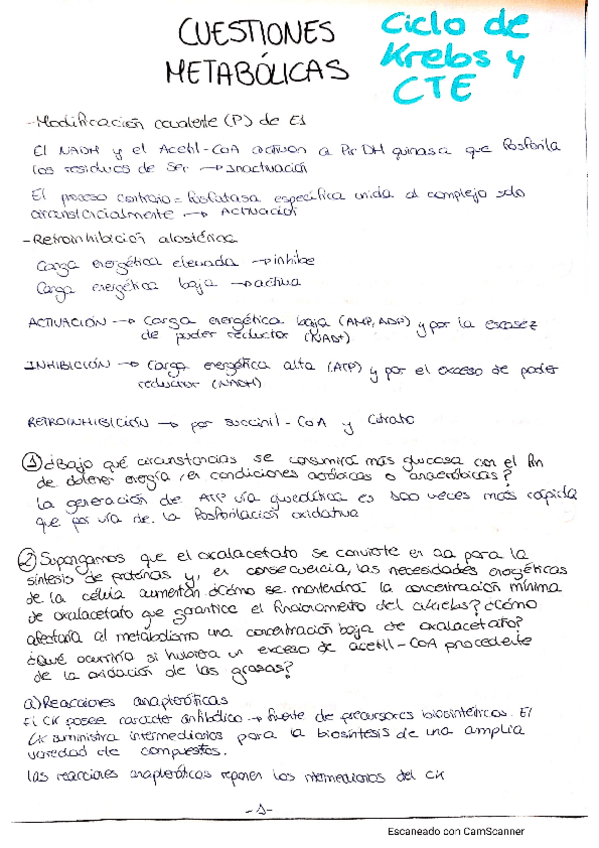 CUESTIONES
METABÓLICAS
Ciclo de
Krebs y
CTE
-Modificación covalente (P) de E1
El NADH y el Acetil-CoA activan a Pir DH quinasa que fosforila
los residuos de Ser → Inactivación
El proceso contrario = Fosfatasa específica unida al complejo solo
circunstancialmente → Activación
-Retroinhibición alostérica
Carga energética elevada → inhibe
Carga energética baja → activa
ACTIVACIÓN → Carga energética baja (AMP, ADP) y por la escasez
de poder reductor (NAD+)
INHIBICIÓN → Carga energética alta (ATP) y por el exceso de poder
reductor (NADH)
RETROINHIBICIÓN → por succinil-CoA y Citrato
① ¿Bajo qué circunstancias se consumirá más glucosa con el fin
de obtener energía, en condiciones aeróbicas o anaeróbicas?
La generación de ATP vía glucolítica es 100 veces más rápida
que por vía de la fosforilación oxidativa
② Supongamos que el oxalacetato se convierte en aa para la
síntesis de proteínas y, en consecuencia, las necesidades energéticas
de la célula aumentan ¿Cómo se mantendrá la concentración mínima
de oxalacetato que garantice el funcionamiento del c.krebs? ¿Cómo
afectaría al metabolismo una concentración baja de oxalacetato?
¿Qué ocurriría si hubiera un exceso de acetil-CoA procedente
de la oxidación de las grasas?
a) Reacciones anapleróticas
El CK posee carácter anfibólico → fuente de precursores biosintéticos. El
CK suministra intermediarios para la biosíntesis de una amplia
variedad de compuestos.
Las reacciones anapleróticas reponen los intermediarios del CK
-1-
Escaneado con CamScanner